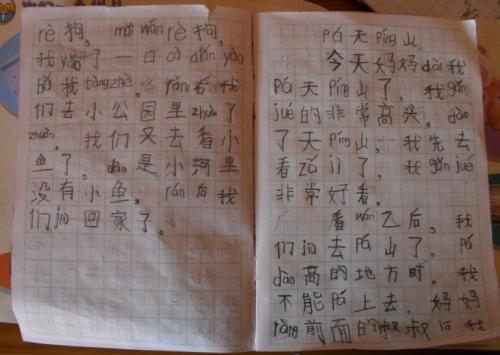 rè 狗。 mǎi wán rè 狗。
我 yǎo 了 一 口 cā diǎn yǎo
bǎ 我 tàng zhē。 rán 后 我
们 去 小 公 园 里 zhuàn 了
zhuàn。 我 们 又 去 看 小
鱼 了。 dàn 是 小 河 里
没 有 小 鱼。 rán 后 我
们 jiù 回 家 了。
Pá 天 Píng 山
今 天 妈 妈 dài 我
Pá 天 Píng 山 了。 我 gǎn
jué 的 非 常 高 兴。 dào
了 天 Píng 山。 我 先 去
看 了。 我 gǎn jué
非 常 好 看。
看 wán 乙 后。 我
们 jiù 去 Pá 山 了。 Pá
dào 高 的 地 方 时。 我
不 能 Pá 上 去。 妈 妈
ràng 前 面 的 叔 叔 我